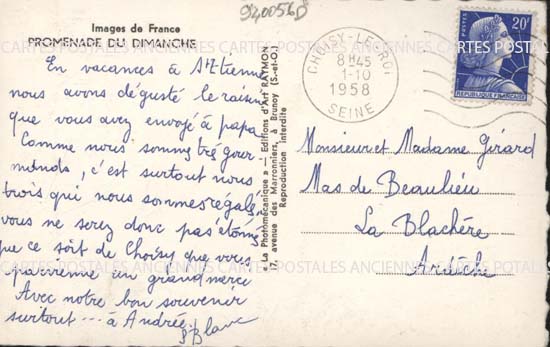 940056D
Images de France
PROMENADE DU DIMANCHE
En vacances à St-Etienne
nous avons dégusté le raisin
que vous avez envoyé à papa
Comme nous sommes très gour
mands, c'est surtout nous
trois qui nous sommes régalés
vous ne serez donc pas étonnés
que ce soit de Choisy que vous
parvienne un grand merci
Avec notre bon souvenir
surtout ... à Andrée.
Blanc
« La Photomécanique » — Editions d'Art RAYMON
17, avenue des Marronniers, à Brunoy (S.-et-O.)
Reproduction interdite
CHOISY-LE-ROI
8H45
1-10
1958
SEINE
POSTES
20F
REPUBLIQUE FRANCAISE
Monsieur et Madame Girard
Mas de Beaulieu
La Blachère
Ardèche
CARTES POSTALES ANCIENNES